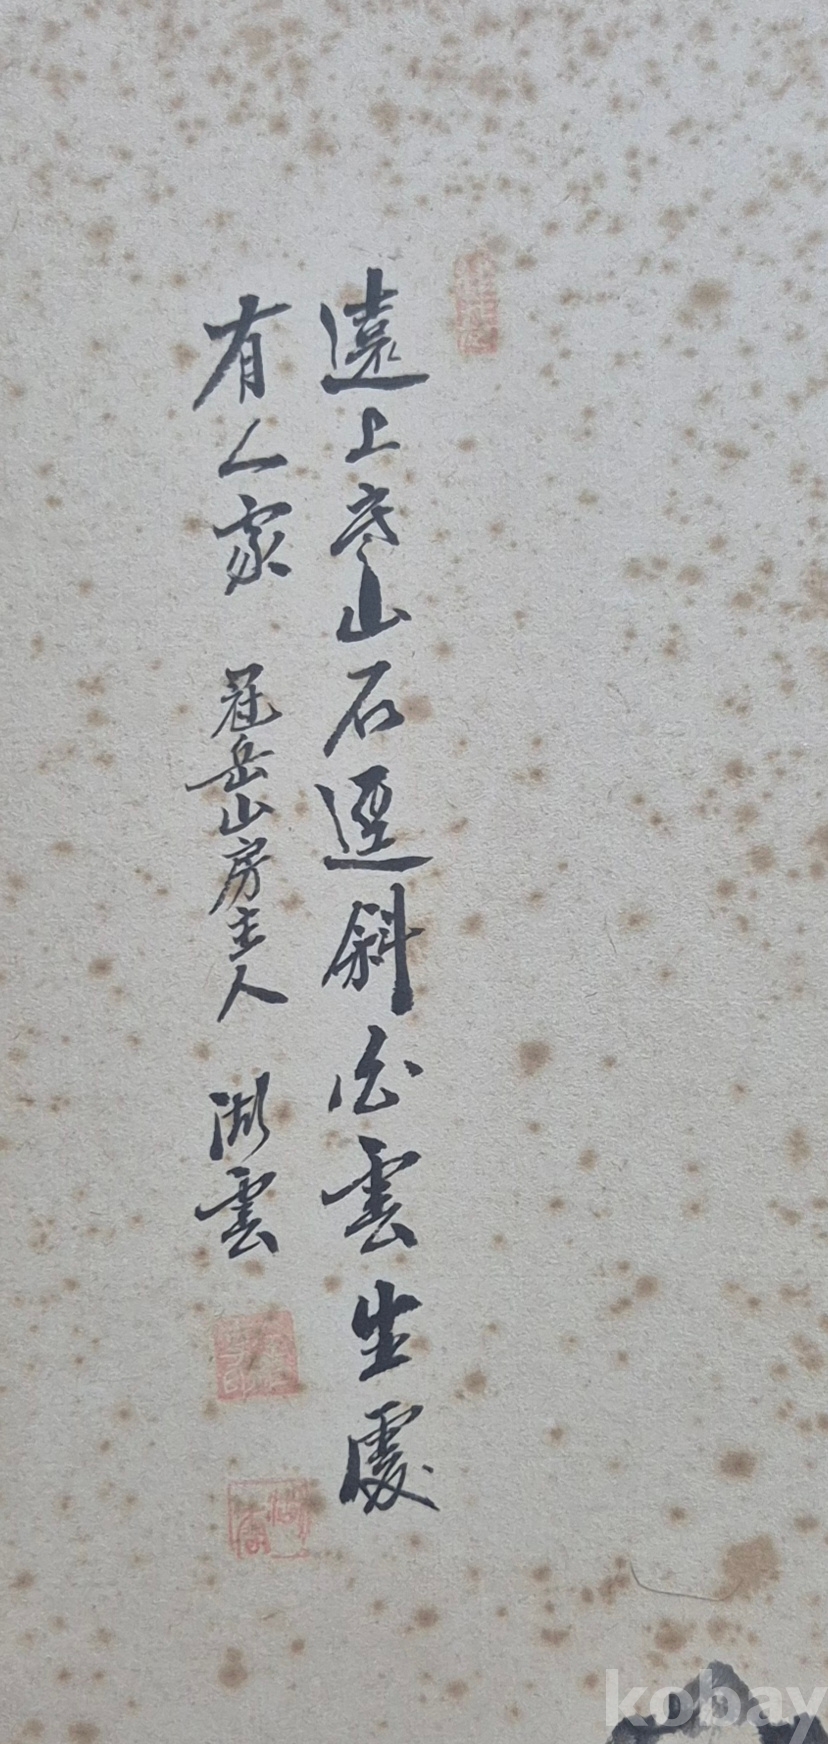 遠上寒山石逕斜白雲生處
有人家 冠岳山房主人 湖雲
kobay